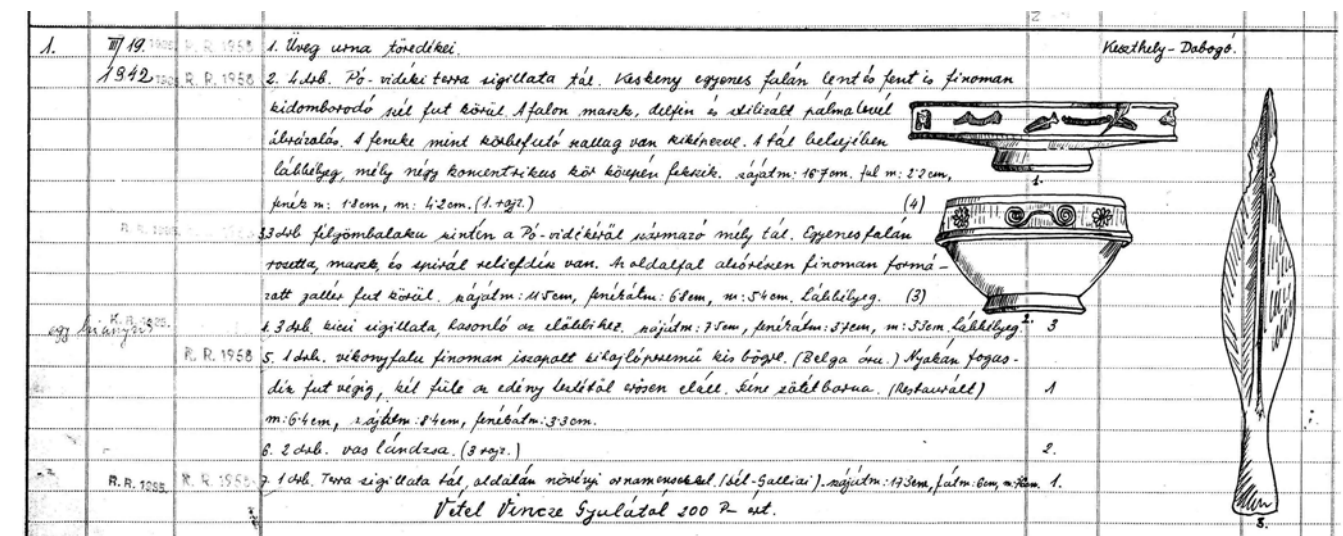 1. III/19. R. R. 1958 1. Üveg urna töredékei. Keszthely-Dobogó.
1942 R. R. 1958 2. 4 drb. Pó-vidéki terra sigillata tál. Keskeny egyenes falán lent és fent is finoman
kidomborodó szél fut körül. A falon maszk, delfin és stilizált pálmalevél
ábrázolás. A feneke mint körbefutó kallag van kiképezve. A tál belsejében
lábbélyeg, mély négy koncentrikus kör közepén fekszik. szájátm: 16·7cm. fal m: 2·2cm,
fenék m: 1·8cm, m: 4·2cm. (1. rajz.) (4)
1.
3. 3 drb félgömbalaku szintén a Pó-vidékéről származó mély tál. Egyenes falán
rosetta, maszk, és spirál reliefdísz van. Az oldalfal alsórészen finoman formá-
zott gallér fut körül. szájátm: 11·5cm, fenékátm: 6·8cm, m: 5·4cm. Lábbélyeg. (3)
2.
egy hiányzik R. R. 4. 3 drb. kicsi sigillata, hasonló az előbbihez. szájátm: 7·5cm, fenékátm: 3·7cm, m: 3·3cm. Lábbélyeg. 3
R. R. 1958 5. 1 drb. vékonyfalu finoman iszapolt kihajlóperemű kis bögre. (Belga áru.) Nyakán fogas-
dísz fut végig, két füle az edény testétől erősen eláll. Színe sötétbarna. (Restaurált) 1
m: 6·4cm, szájátm: 8·4cm, fenékátm: 3·3cm.
6. 2 drb. vas lándzsa. (3 rajz.) 2.
R. R. 1955. R. R. 1958 7. 1 drb. Terra sigillata tál, oldalán növényi ornamensekkel. (dél-Galliai). szájátm: 17·3cm, f.átm: 6cm, 1.
Vétel Vincze Gyulától 200 P- ért.
3.